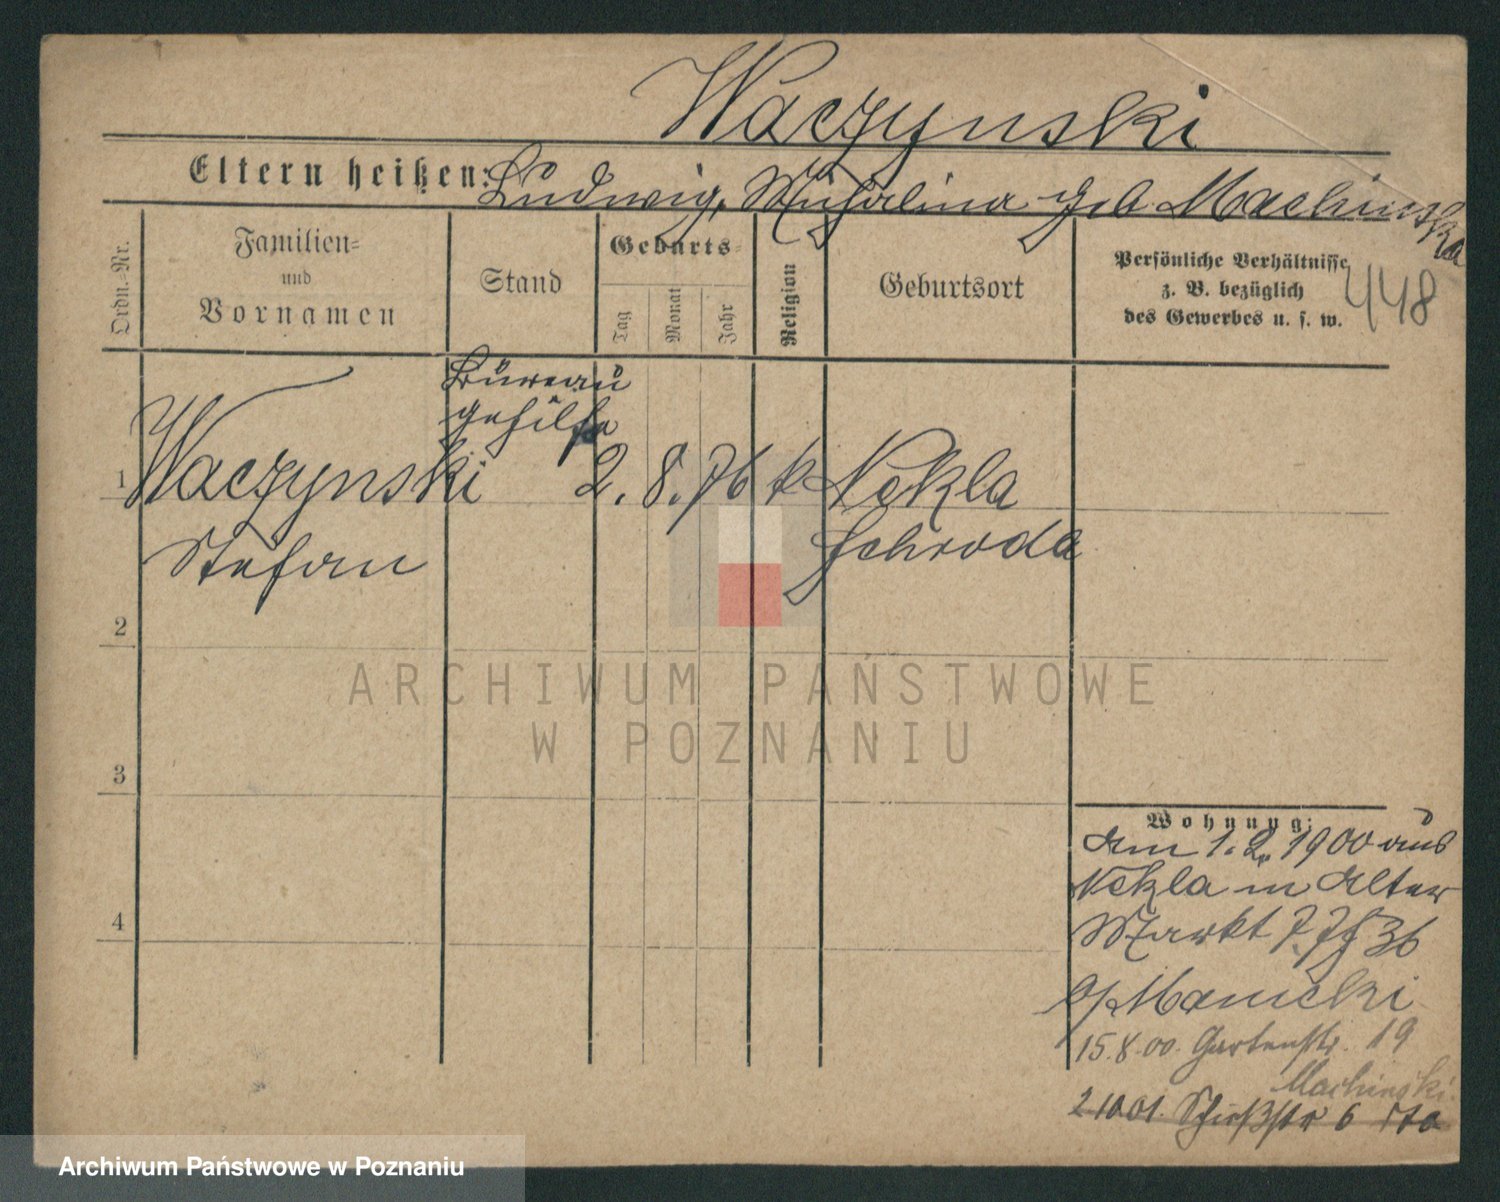 Waczynski
Eltern heißen: Ludwig, Michalina geb. Machinska
Ordn.-Nr.
Familien-
und
Vornamen
Stand
Geburts-
Tag
Monat
Jahr
Religion
Geburtsort
Persönliche Verhältnisse
z. B. bezüglich
des Gewerbes u. s. w.
448
Büreau
gehilfe
1 Waczynski 2. 8. 76 k Nekla
Stefan Schroda
2
3
4
Wohnung:
Am 1. 2. 1900 aus
Nekla in Alter
Markt 36
b/ Manicki
15.8.00. Gartenstr. 19
Machinski
2 10 01. Schießstr 6
ARCHIWUM PAŃSTWOWE
W POZNANIU
Archiwum Państwowe w Poznaniu